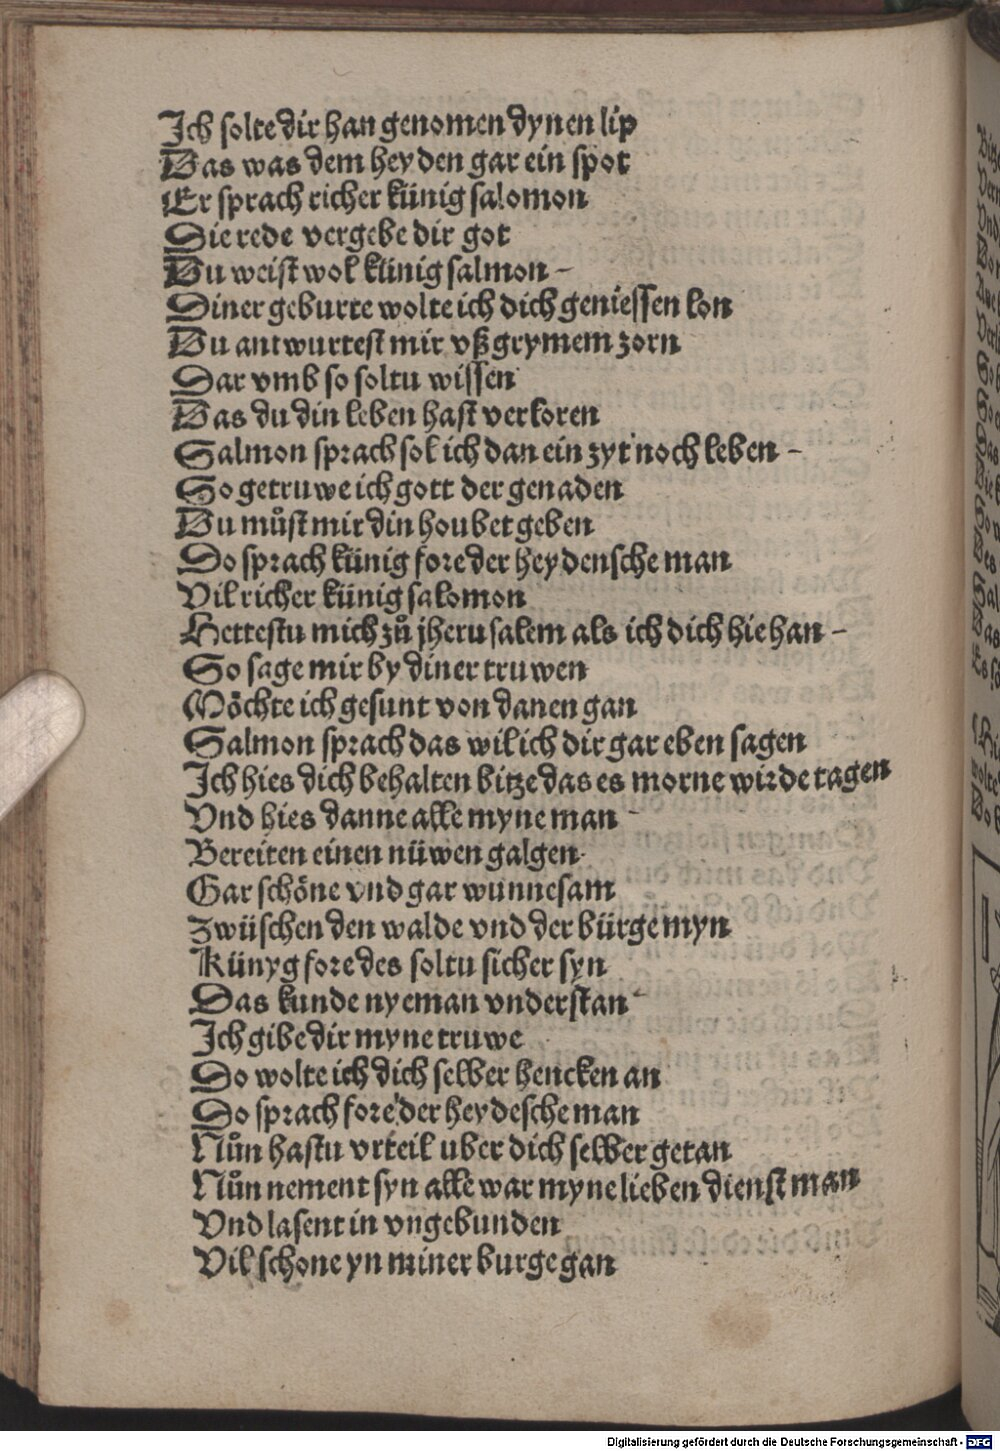 Ich solte dir han genomen dynen lip
Das was dem heyden gar ein spot
Er sprach richer künig salomon
Die rede vergebe dir got
Du weist wol künig salmon –
Diner geburte wolte ich dich geniessen lon
Du antwurtest mir vß grymem zorn
Dar vmb so soltu wissen
Das du din leben hast verloren
Salmon sprach sol ich dan ein zyt noch leben –
So getruwe ich gott der genaden
Du můst mir din houbet geben
Do sprach künig fore der heydensche man
Vil richer künig salomon
Hettestu mich zů jherusalem als ich dich hie han –
So sage mir by diner truwen
Möchte ich gesunt von danen gan
Salmon sprach das wil ich dir gar eben sagen
Ich hies dich behalten bitze das es morne wirde tagen
Vnd hies danne alle myne man –
Bereiten einen nüwen galgen
Gar schöne vnd gar wunnesam
Zwüschen den walde vnd der bürge myn
Künyg fore des soltu sicher syn
Das kunde nyeman vnderstan –
Ich gibe dir myne truwe
Do wolte ich dich selber hencken an
Do sprach fore der heydesche man
Nůn hastu vrteil uber dich selber getan
Nůn nement syn alle war myne lieben dienstman
Vnd lasent in vngebunden
Vil schone yn miner burge gan
Digitalisierung gefördert durch die Deutsche Forschungsgemeinschaft - DFG